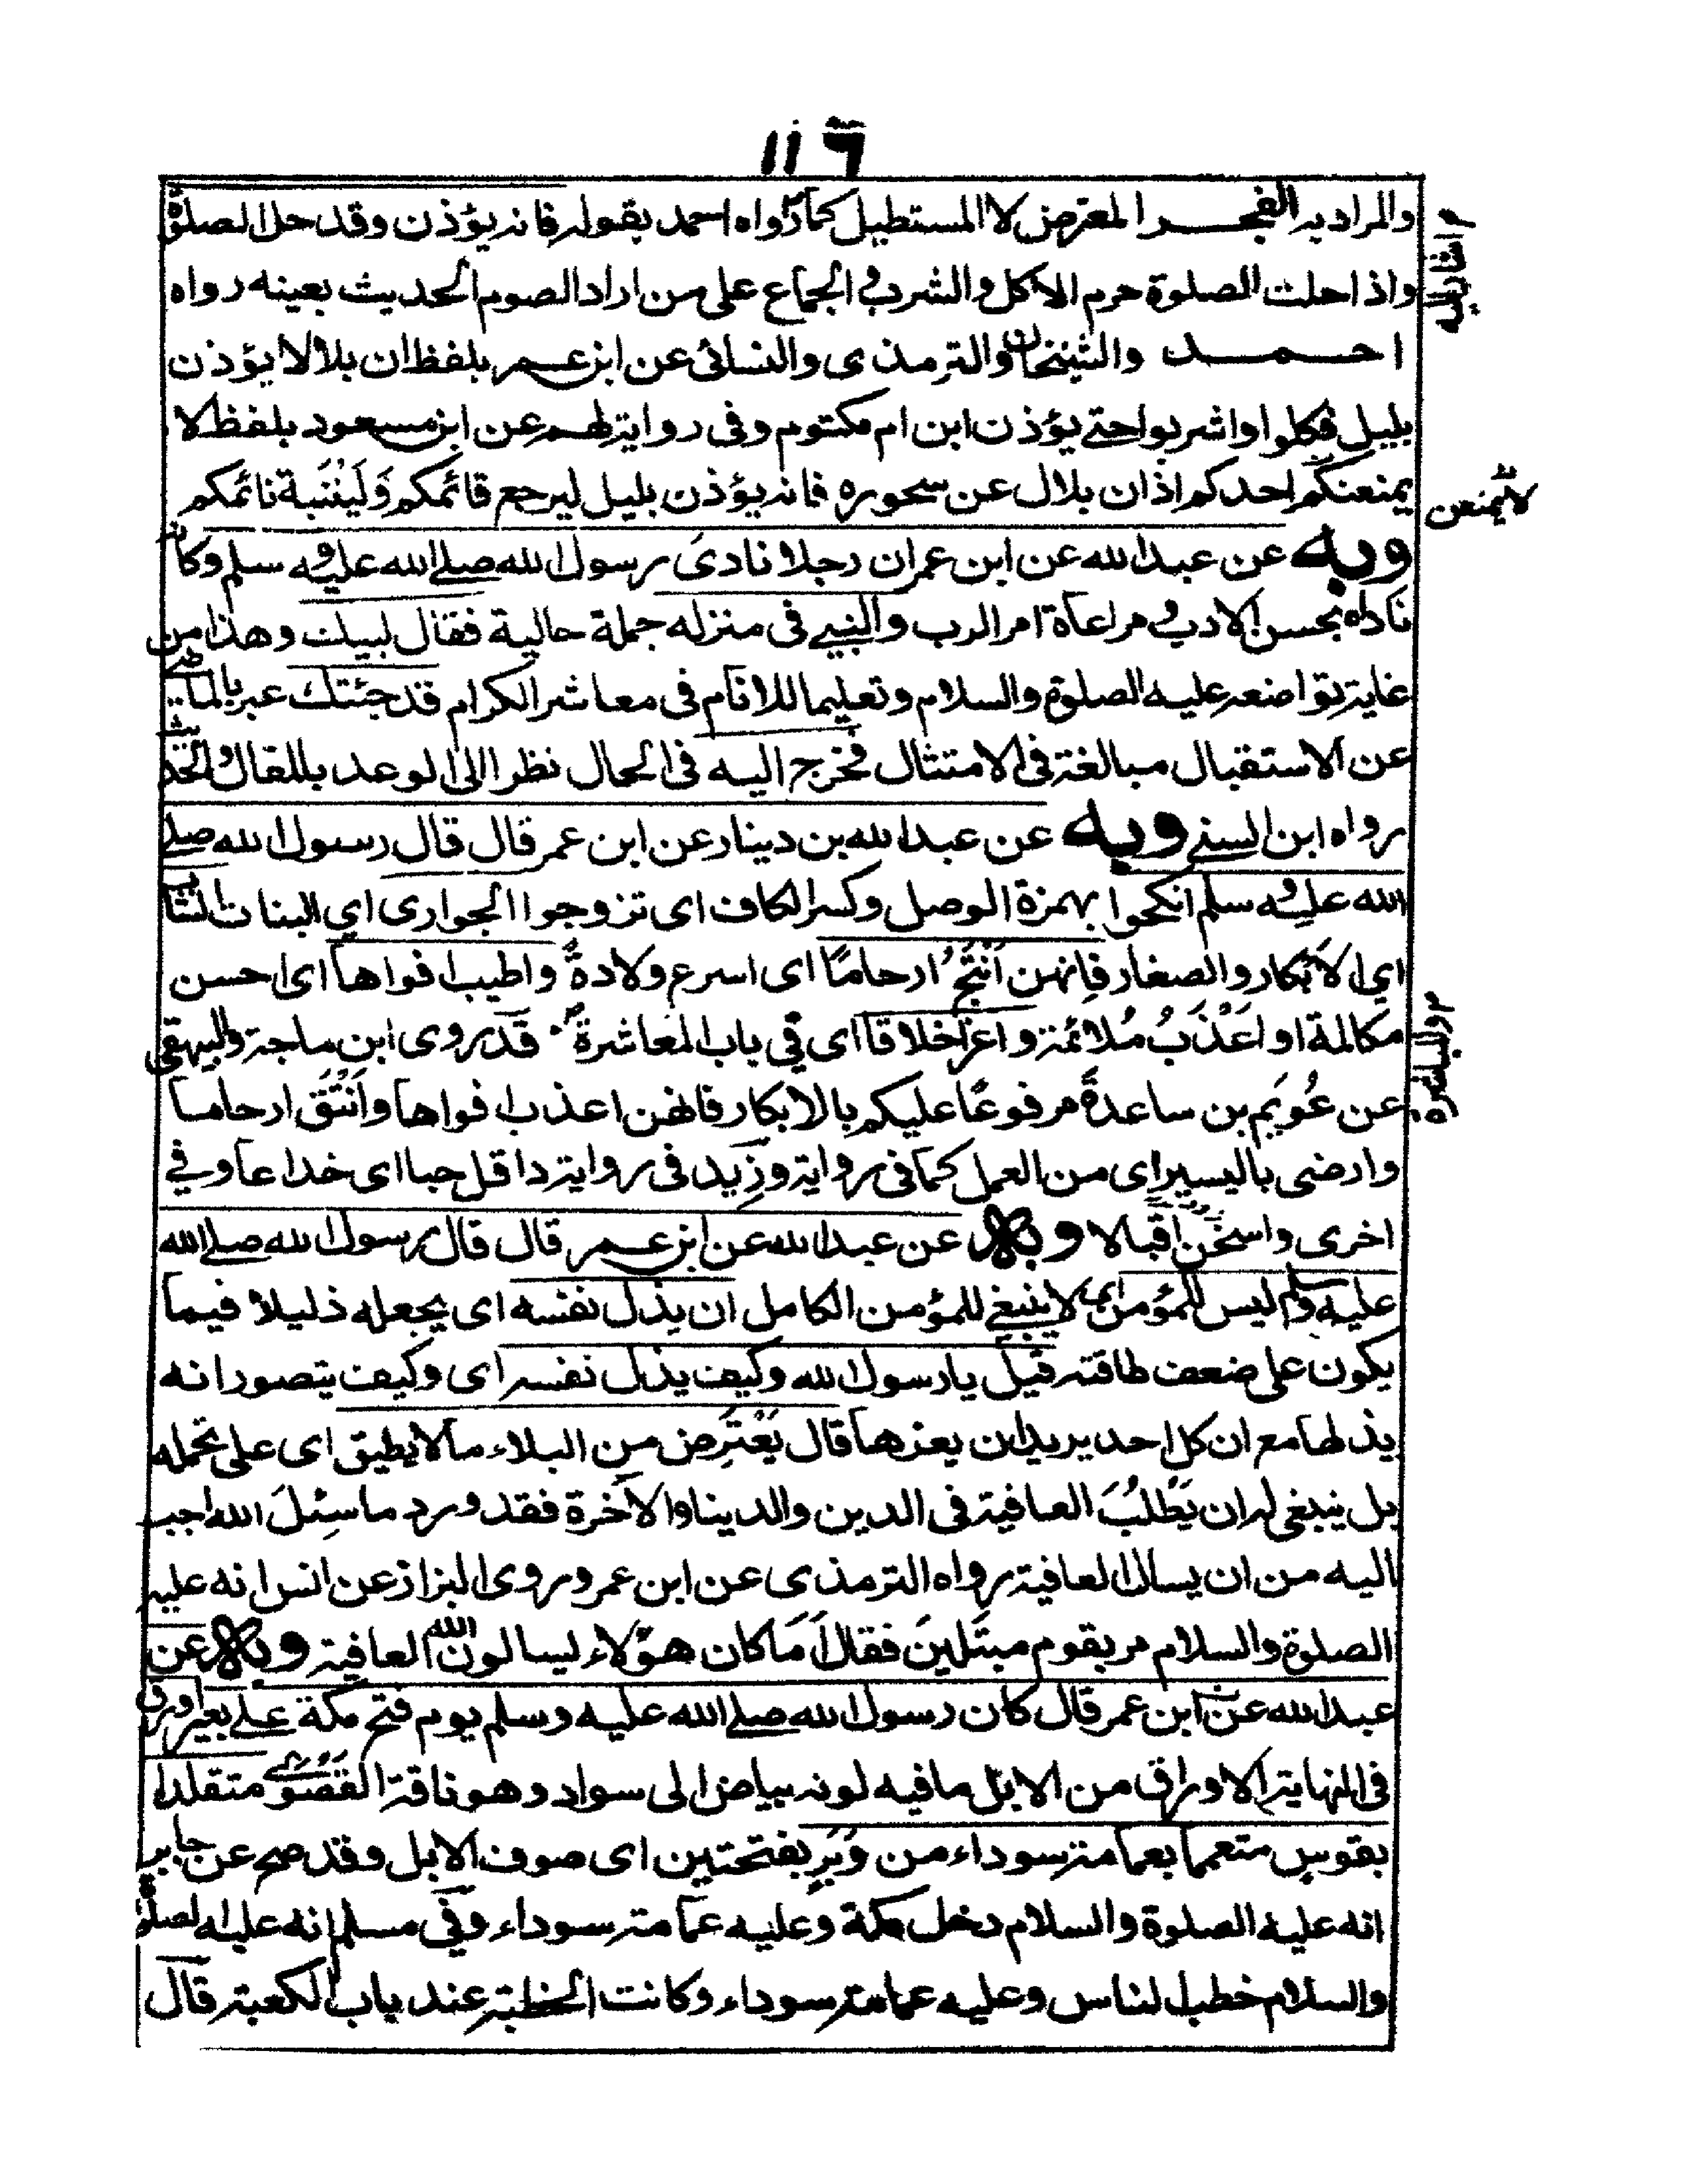 ١١٦
والمراد به الفجر المعترض لا المستطيل كما رواه احمد بقوله فانه يؤذن وقد حل الصلوة
واذا حلت الصلوة حرم الاكل والشرب و الجماع على من اراد الصوم الحديث بعينه رواه
احمد والشيخان والترمذى والنسائى عن ابن عمر بلفظ ان بلالا يؤذن
بليل فكلوا واشربوا حتے يؤذن ابن ام مكتوم وفى رواية لهم عن ابن مسعود بلفظ لا
يمنعنكم احدكم اذان بلال عن سحوره فانه يؤذن بليل ليرجع قائمكم وَلَيُنَبِّهَ نائمكم
لا يمنعن
وبه عن عبد الله عن ابن عمران رجلا نادىٰ رسول الله صلے الله عليه و سلم وكان
ناداه بحسن الادب و مراعاة امر الرب والنبے فى منزله جملة حالية فقال لبيك وهذا من
غاية تواضعه عليه الصلوة والسلام وتعليما للانام فى معاشر الكرام قد جئتك عبر بالماضے
عن الاستقبال مبالغة فى الامتثال فخرج اليه فى الحال نظرا الى الوعد بالمقال والحديث
رواه ابن السنے وبه عن عبد الله بن دينار عن ابن عمر قال قال رسول الله صلے
الله عليه و سلم انكحوا بهمزة الوصل وكسر الكاف اى تزوجوا الجوارى اي البنات الشابة
اي الاَبْكار والصغار فانهن اَنْتَجُ ارحامًا اى اسرع ولادةً واطيب افواها اى احسن
مكالمة او اَعْذَبُ مُلائمة واعز اخلاقا اى في باب المعاشرة قد روى ابن ماجة والبيهقى
عن عُوَيم بن ساعدةً مرفوعًا عليكم بالابكار فانهن اعذب افواها واَنْتَق ارحاما
وارضى باليسير اى من العمل كما فى رواية وزيد فى رواية داقل حبا اى خداعا وفي
اخرى واسخن اقبالا وبه عن عبد الله عن ابن عمر قال قال رسول الله صلے الله
عليه وسلم ليس للمؤمن اى لا ينبغے للمؤمن الكامل ان يذل نفسه اى يجعله ذليلا فيما
يكون على ضعف طاقته قيل يا رسول الله وكيف يذل نفسه اى وكيف يتصور انه
يذلها مع ان كل احد يريد ان يعزها قال يَعْتَرِض من البلاء مالا يطيق اى على تحمله
بل ينبغى له ان يَطْلُبَ العافية فى الدين والدينا والاٰخرة فقد ورد ما سِئلَ الله احب
اليه من ان يسال العافية رواه الترمذى عن ابن عمر وروى البزاز عن انس انه عليه
الصلوة والسلام مر بقوم مبتَلين فقال اَمَا كان هؤلاء ليسالون الله العافية وبه عن
عبد الله عن ابن عمر قال كان رسول الله صلے الله عليه وسلم يوم فتح مكة علے بعير اورق
فى النهاية الاوراق من الابل مافيه لونه بياض الى سواد وهو ناقة القَصْوٰى متقلدا
بقوس متعمما بعمامة سوداء من وَبَرٍ بفتحتين اى صوف الابل وقد صح عن جابر
انه عليه الصلوة والسلام دخل مكة وعليه عمامة سوداء وفي مسلم انه عليه الصلوة
والسلام خطب لناس وعليه عمامة سوداء وكانت الخطبة عند باب الكعبة قال